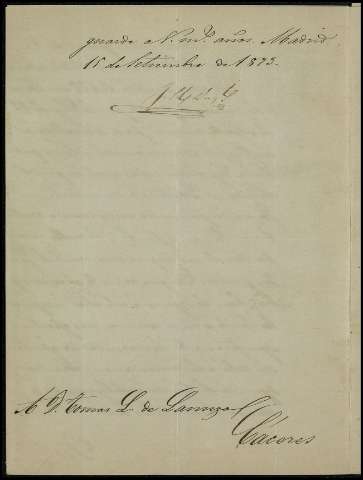 guarde a V. m.s años. Madrid
15 de Setiembre de 1893.
A D. Tomas L. de
Cáceres